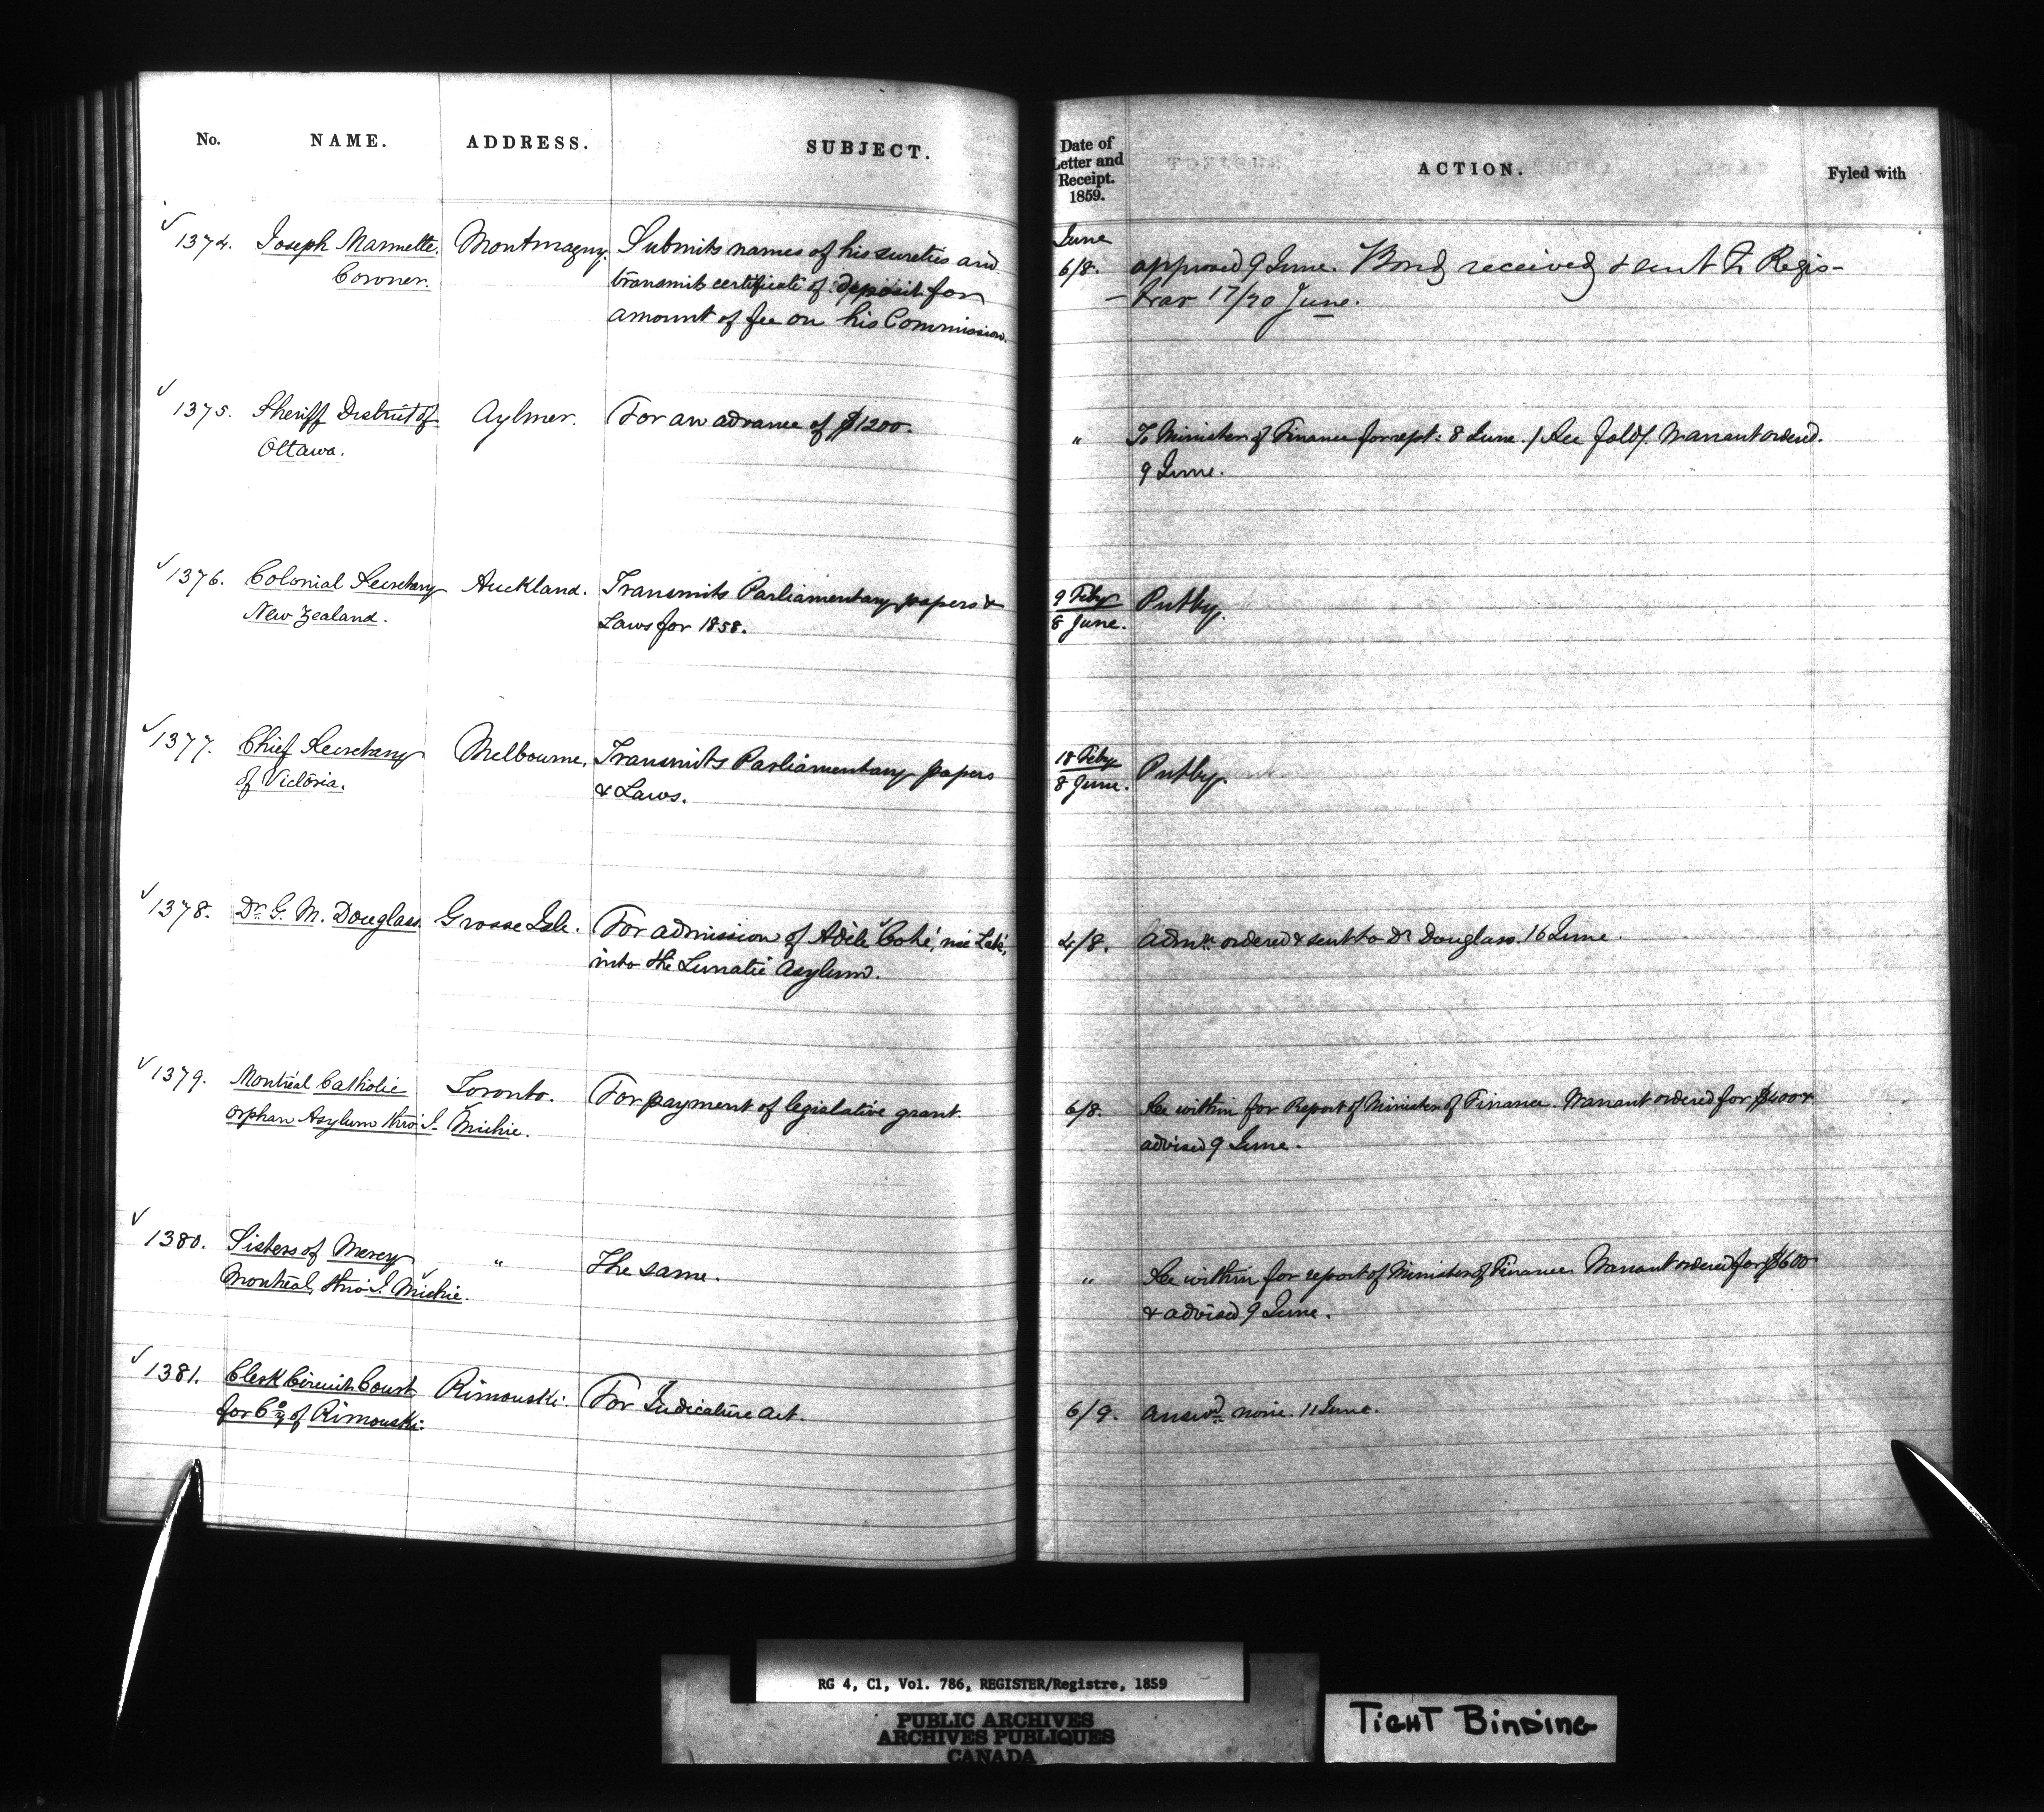 No. NAME. ADDRESS. SUBJECT.
Date of Letter and Receipt. 1859. ACTION. Fyled with
1374. Joseph Marmette, Montmagny. Submits names of his sureties and
Coroner. transmits certificate of deposit for
amount of fee on his Commission.
June
6/8. approved 9 June. Bond received & sent to Regis-
-trar 17/20 June.
1375. Sheriff District of Aylmer. For an advance of $1200.
Ottawa.
" To Minister of Finance for rept: 8 June. / See fold/. Warrant ordered.
9 June.
1376. Colonial Secretary Auckland. Transmits Parliamentary papers &
New Zealand. Laws for 1858.
9 Feby Putby.
8 June.
1377. Chief Secretary Melbourne. Transmits Parliamentary papers
of Victoria. & Laws.
18 Feby Putby.
8 June.
1378. Dr. G. M. Douglass. Grosse Isle. For admission of Adèle née
into the Lunatic Asylum.
4/8. admn. ordered & sent to Dr Douglass. 16 June.
1379. Montreal Catholic Toronto. For payment of legislative grant.
Orphan Asylum thro' J. Michie.
6/8. See within for Report of Minister of Finance. Warrant ordered for $400 &
advised 9 June.
1380. Sisters of Mercy " The same.
Montreal, thro' J. Michie.
" See within for report of Minister of Finance. Warrant ordered for $600
& advised 9 June.
1381. Clerk Circuit Court Rimouski. For Judicature Act.
for Coy of Rimouski.
6/9. answd. none. 11 June.
RG 4, C1, Vol. 786, REGISTER/Registre, 1859
PUBLIC ARCHIVES
ARCHIVES PUBLIQUES
CANADA
TIGHT BINDING